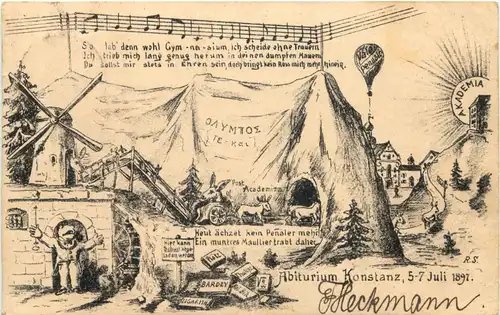 So leb' denn wohl Gym-na-sium, ich scheide ohne Trauern
Ich trieb mich lang genug herum in deinen dumpfen Mauern
Du sollst mir stets in Ehren sein, doch bringt kein Ross mich mehr hinein.
ΟΛΥΜΠΟΣ
AKADEMIA
Post
Academiam
Heut ächzet kein Pennäler mehr
Ein muntres Maultier trabt daher.
Hier kann
BARDEY
Abiturium Konstanz, 5-7 Juli 1897.
R.S.
Heckmann.